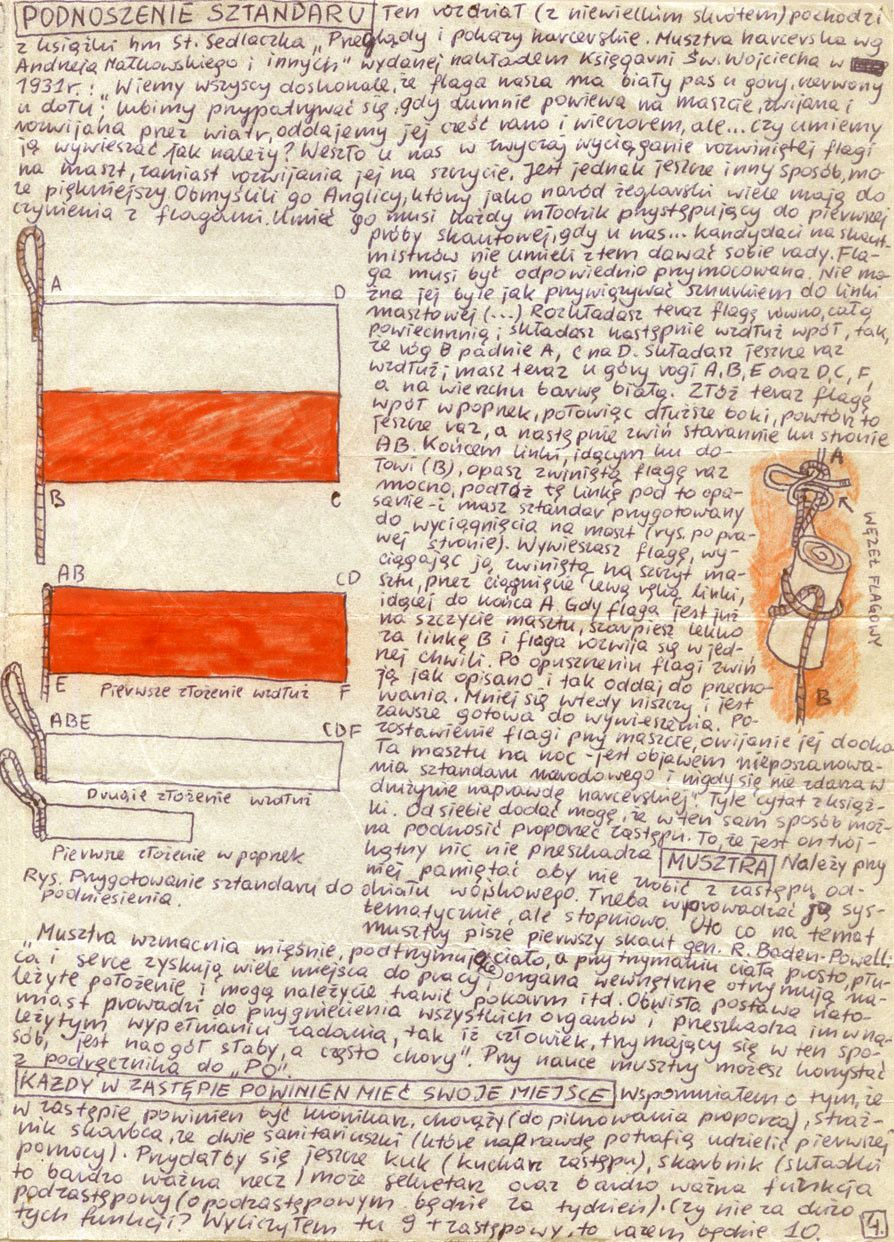 PODNOSZENIE SZTANDARU Ten rozdział (z niewielkim skrótem) pochodzi
z książki hm St. Sedlaczka „Przeglądy i pokazy harcerskie. Musztra harcerska wg
Andrzeja Małkowskiego i innych" wydanej nakładem Księgarni Św. Wojciecha w
1931r.: „Wiemy wszyscy doskonale, że flaga nasza ma biały pas u góry, czerwony
u dołu; lubimy przypatrywać się, gdy dumnie powiewa na maszcie, zwijana i
rozwijana przez wiatr, oddajemy jej cześć rano i wieczorem, ale... czy umiemy
ją wywieszać jak należy? Weszło u nas w zwyczaj wyciąganie rozwiniętej flagi
na maszt, zamiast rozwijania jej na szczycie. Jest jednak jeszcze inny sposób, mo-
że piękniejszy. Obmyślili go Anglicy, który jako naród żeglarski wiele mają do
czynienia z flagami. Umieć go musi każdy młodzik przystępujący do pierwszej
próby skautowej, gdy u nas... kandydaci na skaut-
mistrzów nie umieli z tem dawać sobie rady. Fla-
ga musi być odpowiednio przymocowana. Nie mo-
żna jej byle jak przywiązywać sznurkiem do linki
masztowej (...) Rozkładasz teraz flagę równo, całą
powierzchnią; składasz następnie wzdłuż wpół, tak,
że róg B padnie A, C na D. Składasz jeszcze raz
wzdłuż; masz teraz u góry rogi A, B, E oraz D, C, F,
a na wierzchu barwę białą. Złóż teraz flagę
wpół w poprzek, połowiąc dłuższe boki, powtórz to
jeszcze raz, a następnie zwiń starannie ku stronie
AB. Końcem linki, idącym ku do-
łowi (B), opasz zwiniętą flagę raz
mocno, podłóż tę linkę pod to opa-
sanie i masz sztandar przygotowany
do wyciągnięcia na maszt (rys. po pra-
wej stronie). Wywieszasz flagę, wy-
ciągając ją zwiniętą na szczyt ma-
sztu, przez ciągnięcie lewą ręką linki,
idącej do końca A. Gdy flaga jest już
na szczycie masztu, szarpiesz lekko
za linkę B i flaga rozwija się w jed-
nej chwili. Po opuszczeniu flagi zwiń
ją jak opisano i tak oddaj do przecho-
wania. Mniej się wtedy niszczy i jest
zawsze gotowa do wywieszenia. Po-
zostawienie flagi przy maszcie, owijanie jej dooko-
ła masztu na noc - jest objawem nieposzanowa-
nia sztandaru narodowego i nigdy się nie zdarza w
drużynie naprawdę harcerskiej". Tyle cytat z książ-
ki. Od siebie dodać mogę, że w ten sam sposób moż-
na podnosić proporzec zastępu. To, że jest on trój-
kątny nic nie przeszkadza. MUSZTRA Należy przy
niej pamiętać aby nie zrobić z zastępu od-
działu wojskowego. Trzeba wprowadzać ją sys-
tematycznie, ale stopniowo. Oto co na temat
musztry pisze pierwszy skaut gen. R. Baden-Powell.
„Musztra wzmacnia mięśnie, podtrzymujące ciało, a przy trzymaniu ciała prosto, płu-
ca i serce zyskują wiele miejsca do pracy i organa wewnętrzne otrzymują na-
leżyte położenie i mogą należycie trawić pokarm itd. Obwisła postawa nato-
miast prowadzi do przygniecenia wszystkich organów i przeszkadza im w na-
leżytym wypełnianiu zadania, tak iż człowiek, trzymający się w ten spo-
sób, jest naogół słaby, a często chory". Przy nauce musztry możesz korzystać
z podręcznika do „PO".
KAŻDY W ZASTĘPIE POWINIEN MIEĆ SWOJE MIEJSCE Wspomniałem o tym, że
w zastępie powinien być kronikarz, chorąży (do pilnowania proporca), straż-
nik skarbca, ze dwie sanitariuszki (które naprawdę potrafią udzielić pierwszej
pomocy). Przydałby się jeszcze kuk (kucharz zastępu), skarbnik (składki
to bardzo ważna rzecz) może sekretarz oraz bardzo ważna funkcja
podzastępowy (o podzastępowym będzie za tydzień). Czy nie za dużo
tych funkcji? Wyliczyłem tu 9 + zastępowy, to razem będzie 10.
4.
A
D
B
C
AB
CD
E
F
Pierwsze złożenie wzdłuż
ABE
CDF
Drugie złożenie wzdłuż
Pierwsze złożenie w poprzek
Rys. Przygotowanie sztandaru do
podniesienia.
A
WĘZEŁ FLAGOWY
B